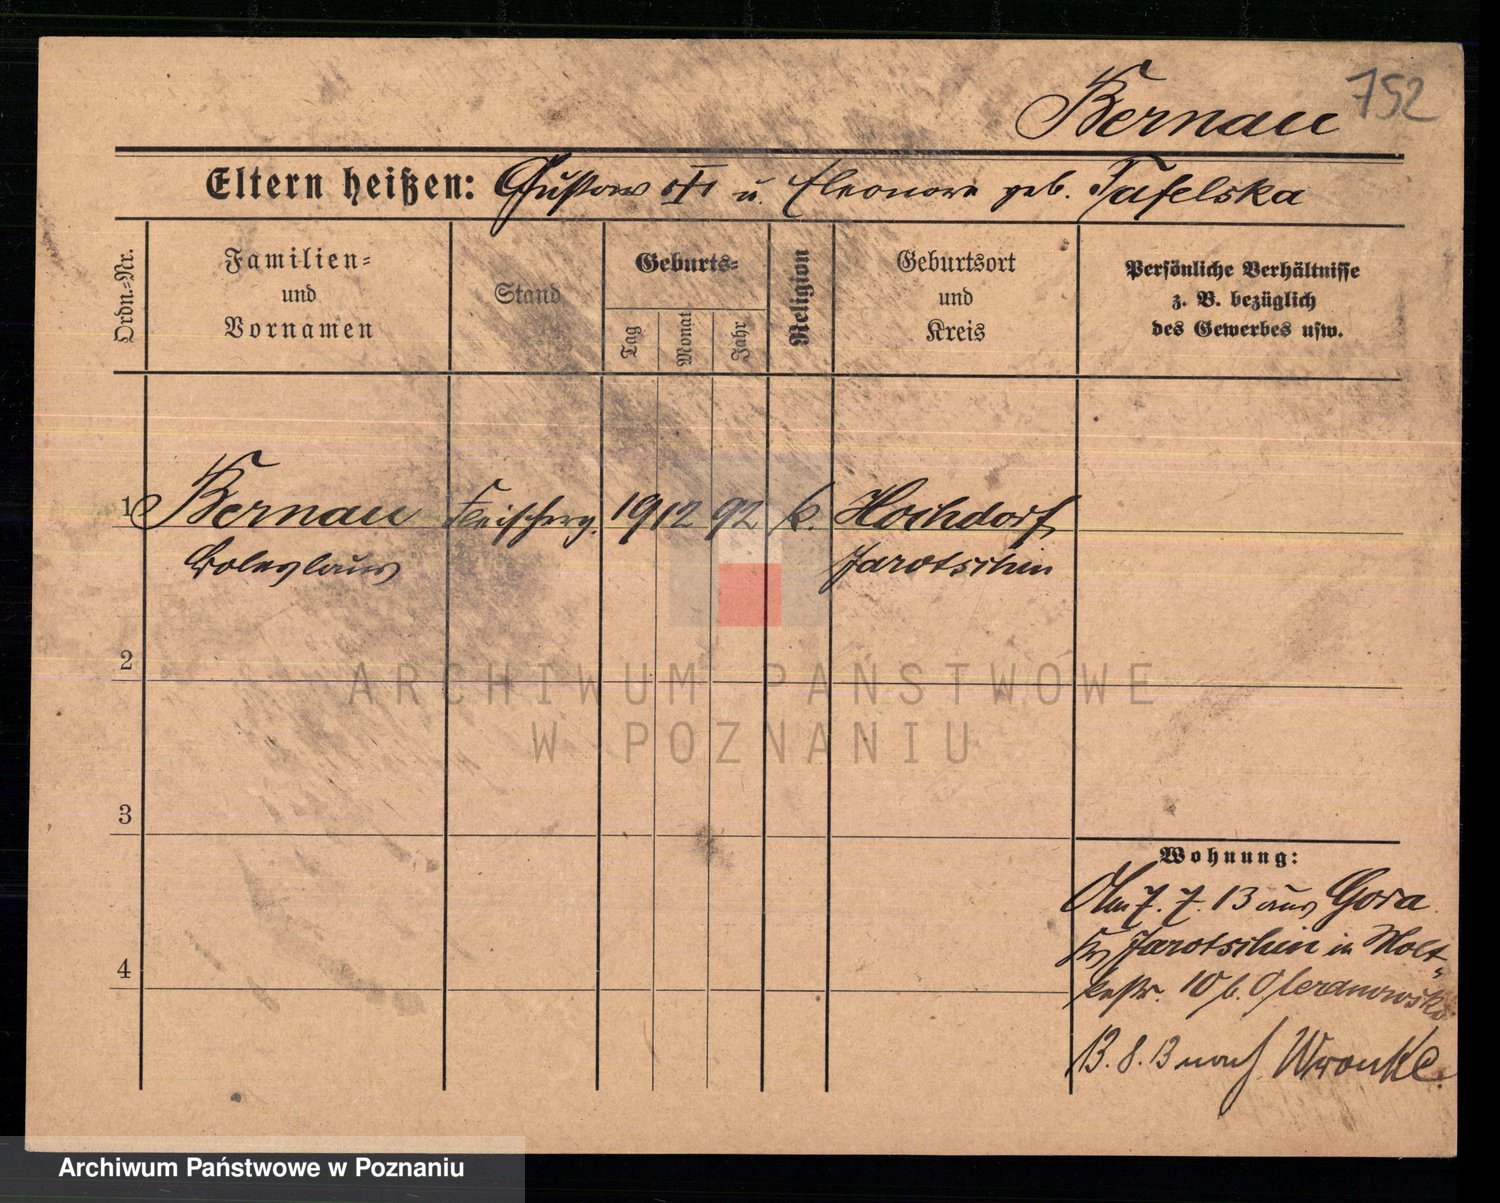 752
Bernau
Eltern heißen: Gustav u. Eleonore geb. Tafelska
Ordn.-Nr.
Familien-
und
Vornamen
Stand
Geburts-
Tag
Monat
Jahr
Religion
Geburtsort
und
Kreis
Persönliche Verhältnisse
z. B. bezüglich
des Gewerbes usw.
1 Bernau Fleischerg. 19 12 92 k. Hochdorf
Boleslaus Jarotschin
2
3
4
Wohnung:
Am 7. 7. 13 aus Gora
Kr. Jarotschin in Molt-
kestr. 10 b.
13. 8. 13 nach Wronke.
ARCHIWUM PAŃSTWOWE
W POZNANIU
Archiwum Państwowe w Poznaniu